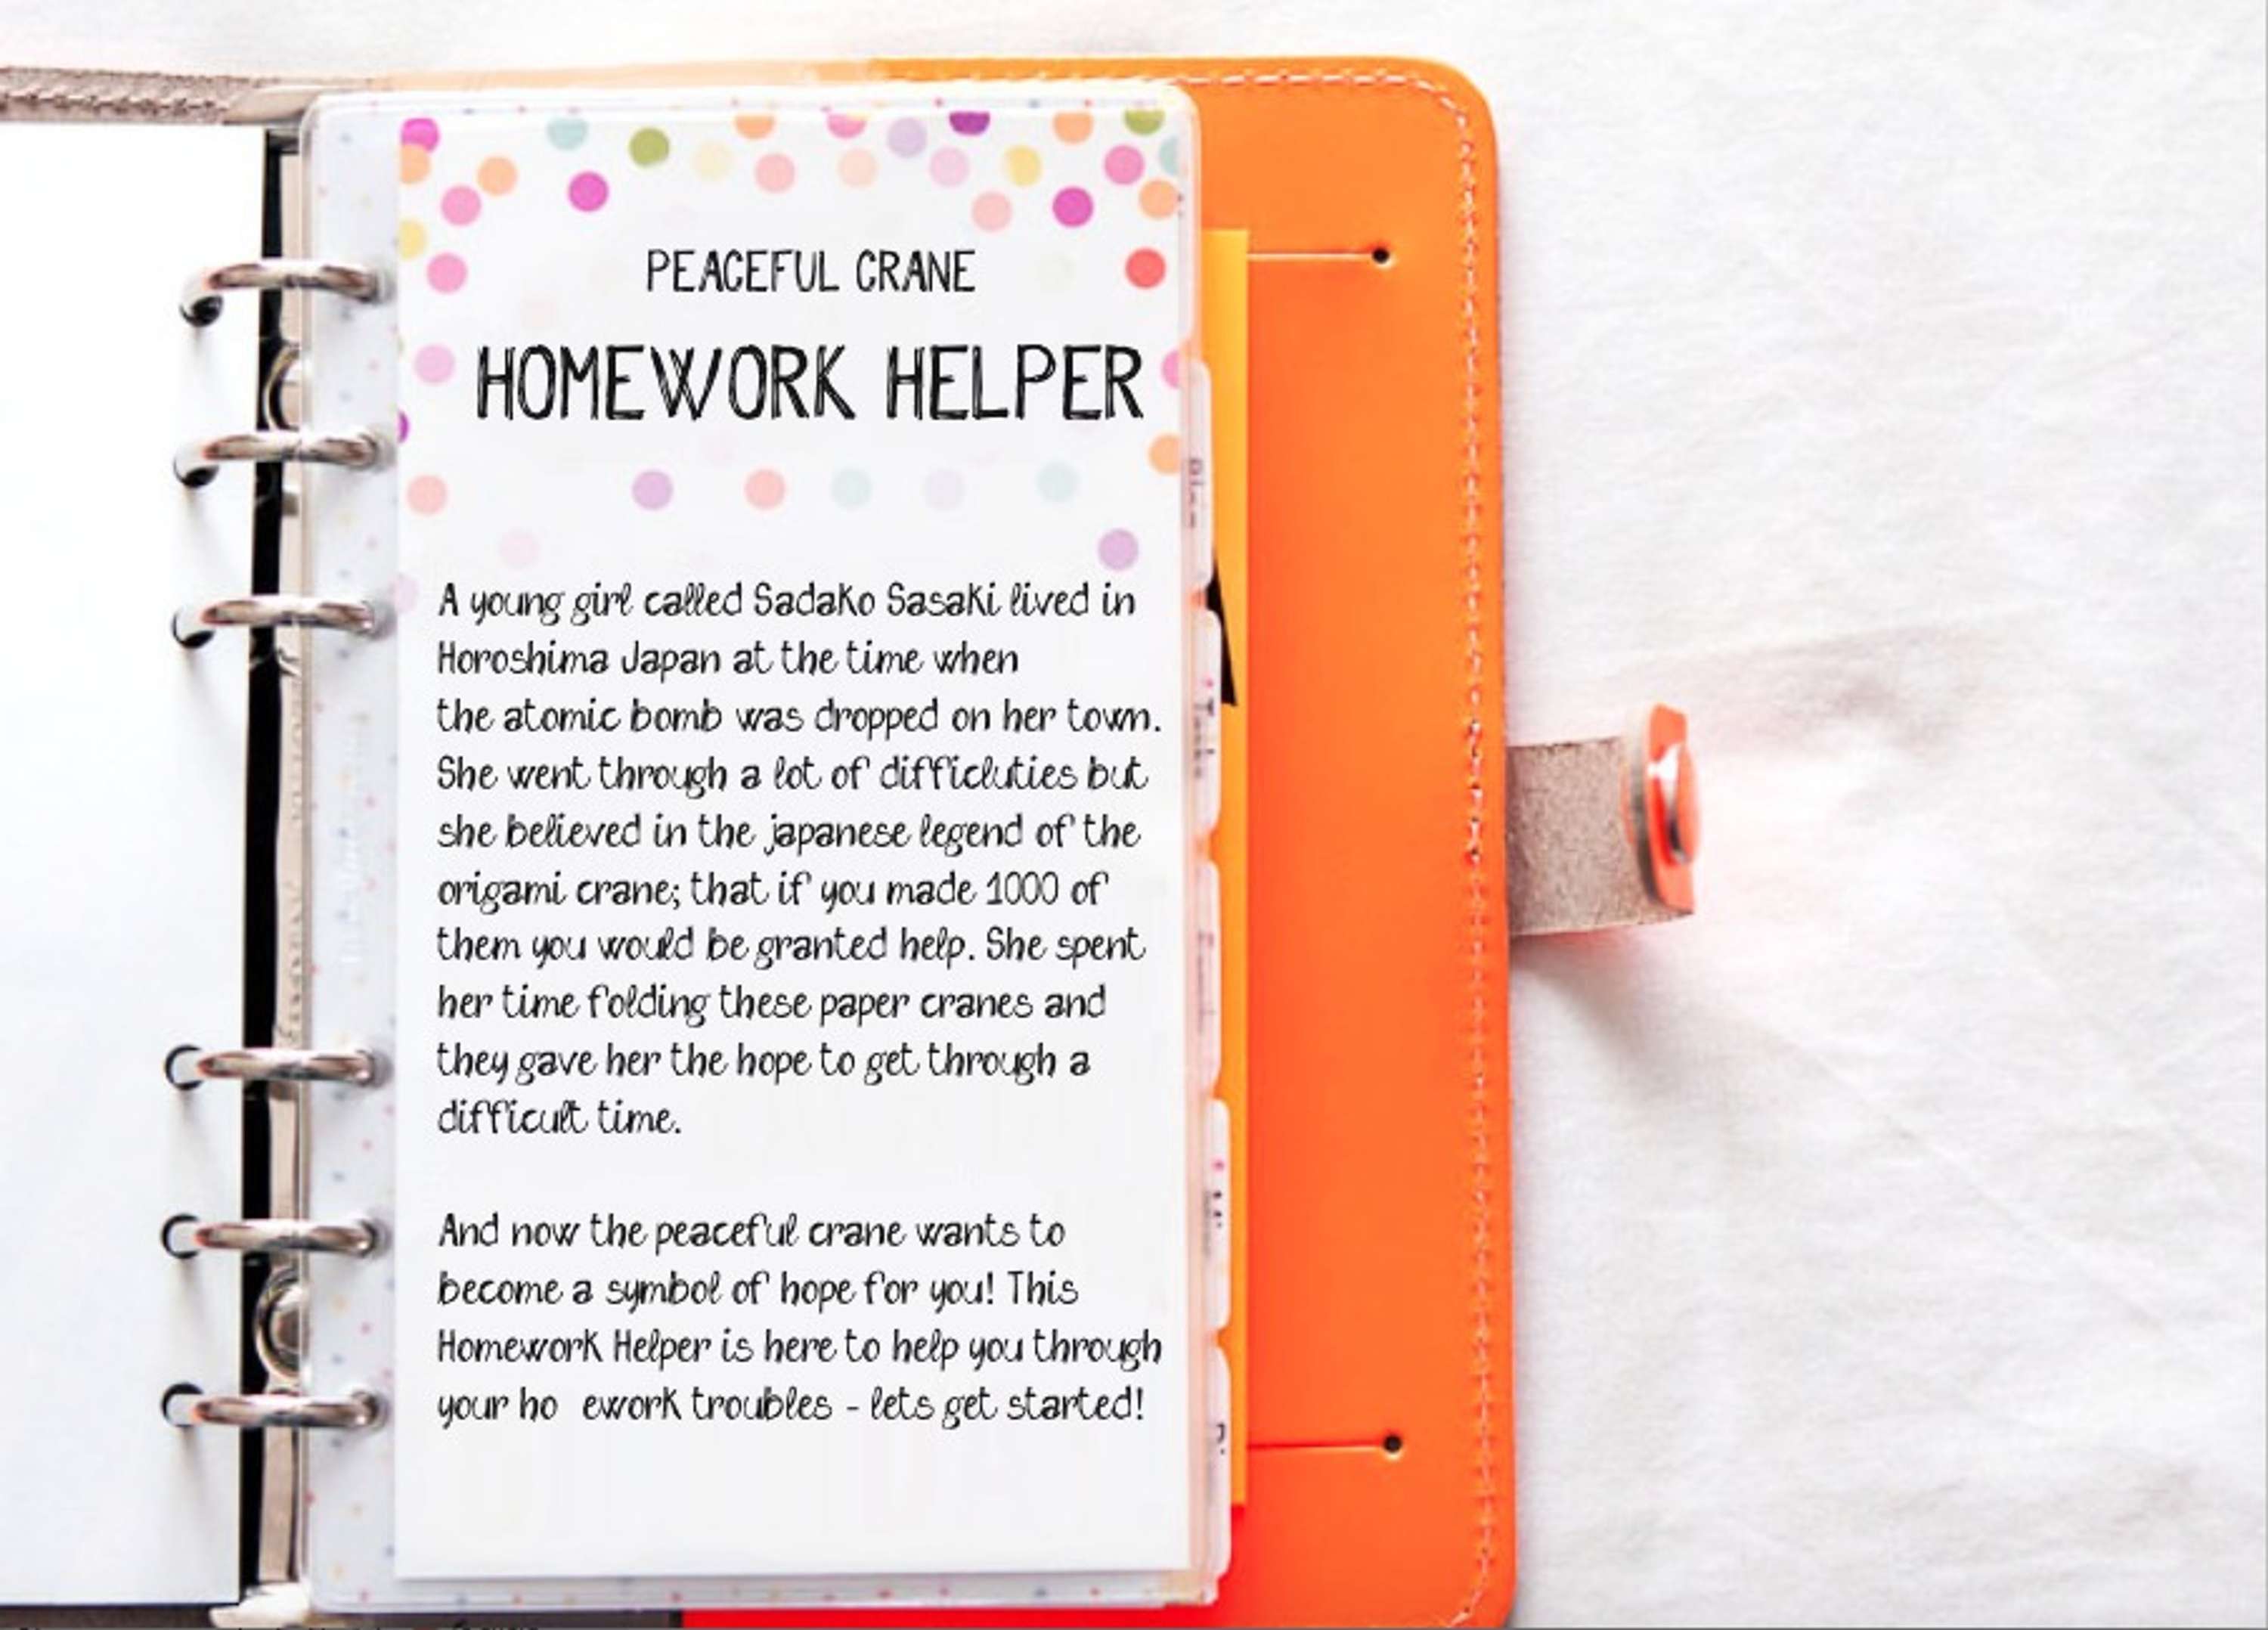 PEACEFUL CRANE
HOMEWORK HELPER
A young girl called Sadako Sasaki lived in
Horoshima Japan at the time when
the atomic bomb was dropped on her town.
She went through a lot of difficluties but
she believed in the japanese legend of the
origami crane; that if you made 1000 of
them you would be granted help. She spent
her time folding these paper cranes and
they gave her the hope to get through a
difficult time.
And now the peaceful crane wants to
become a symbol of hope for you! This
Homework Helper is here to help you through
your ho ework troubles - lets get started!